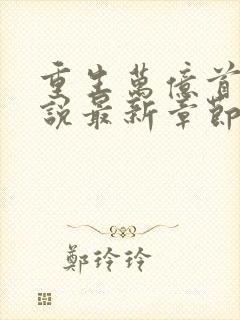 重生萬億首
說最新章節
鄭玲玲